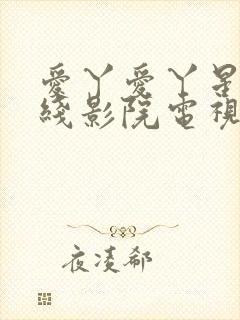 愛丫愛丫是
綫影院電視
夜凌郗